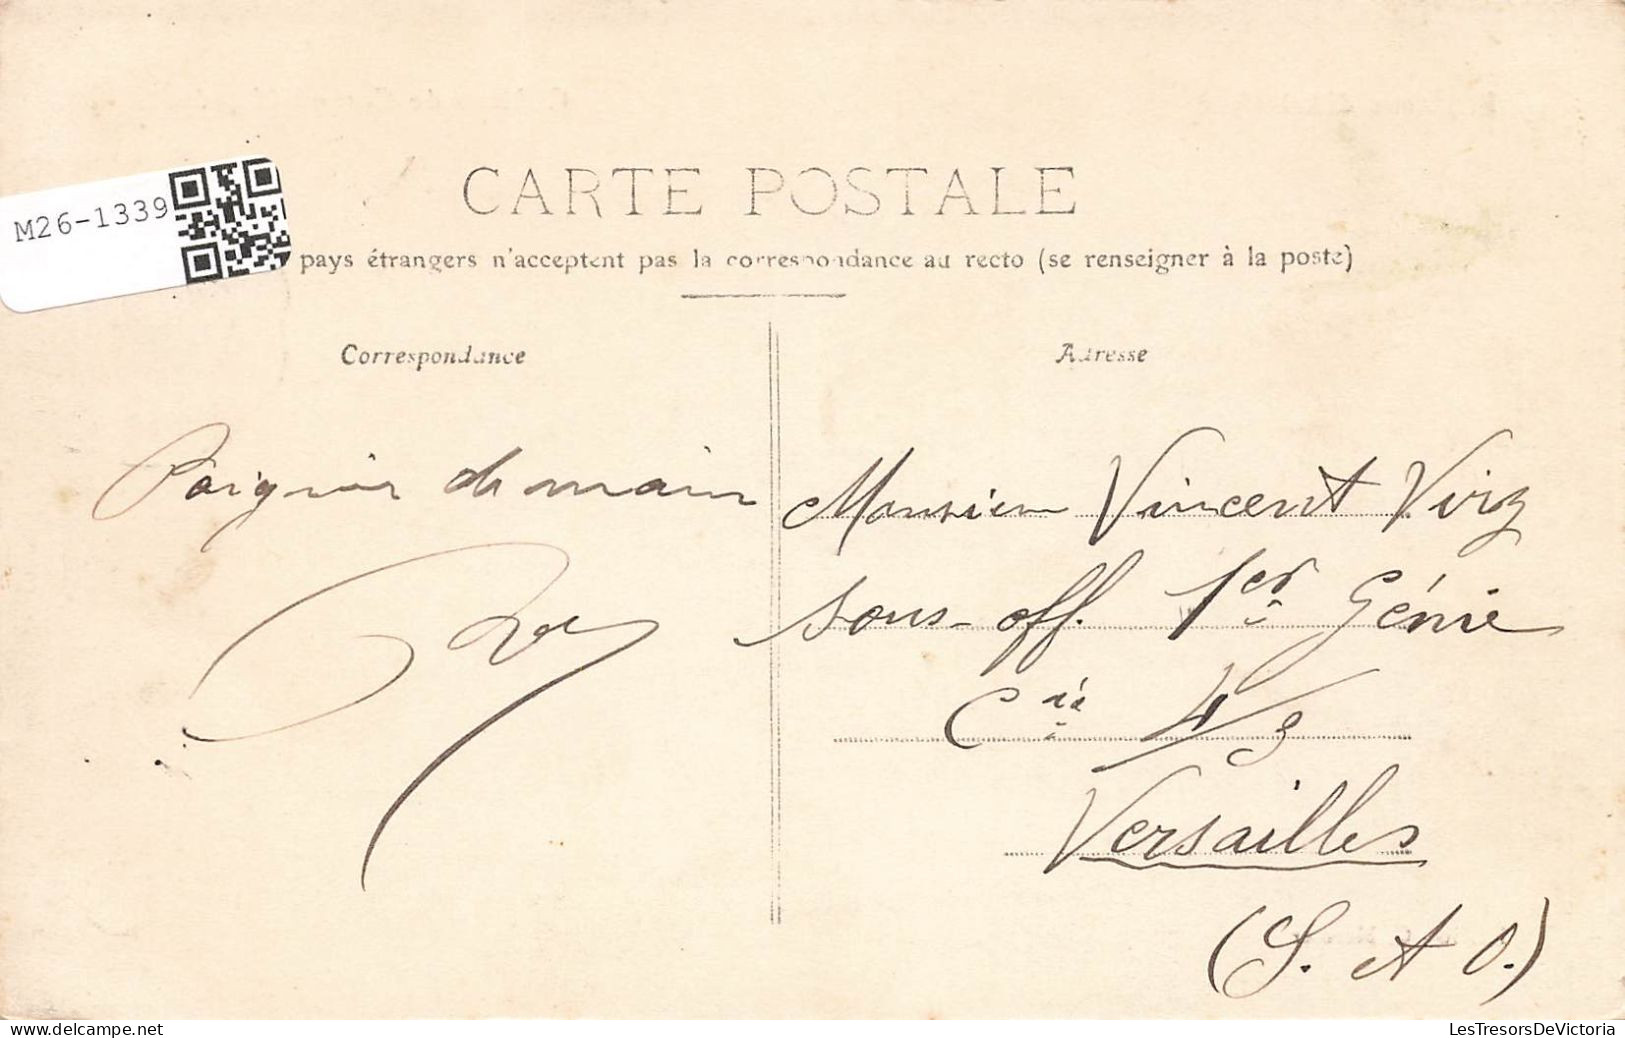 M26-1339
CARTE POSTALE
pays étrangers n'acceptent pas la correspondance au recto (se renseigner à la poste)
Correspondance
Adresse
Poignée de main
Monsieur Vincent Virz
sous-off. 1er Génie
Cie 4/3
Versailles
(S. et O.)
LesTresorsDeVictoria
delcampe.net